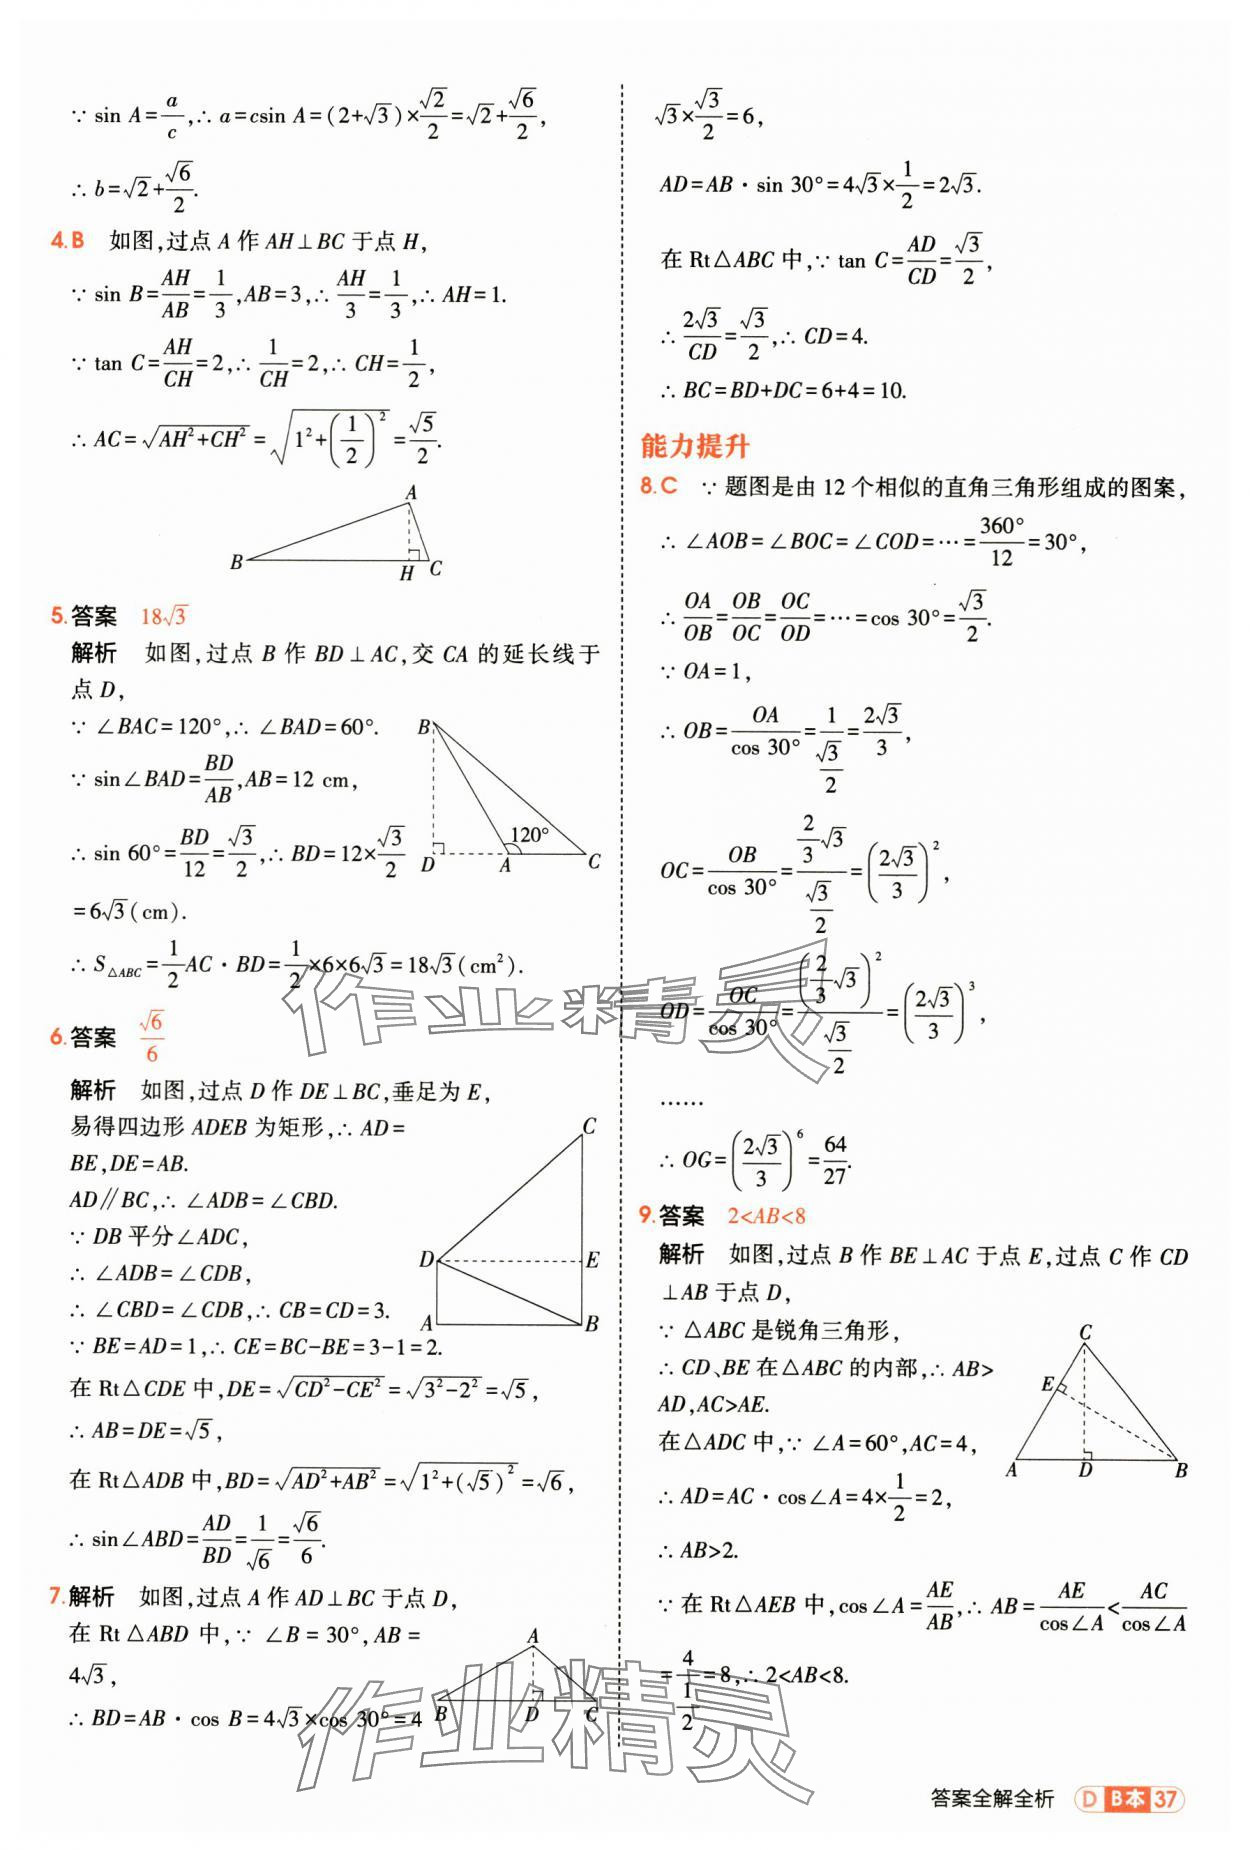 ∵ sin A=a/c,∴ a=csin A=(2+√3)×√2/2=√2+√6/2,
∴ b=√2+√6/2.
4.B 如图,过点 A 作 AH⊥BC 于点 H,
∵ sin B=AH/AB=1/3,AB=3,∴ AH/3=1/3,∴ AH=1.
∵ tan C=AH/CH=2,∴ 1/CH=2,∴ CH=1/2,
∴ AC=√(AH²+CH²)=√(1²+(1/2)²)=√5/2.
A
B
H C
5.答案 18√3
解析 如图,过点 B 作 BD⊥AC,交 CA 的延长线于
点 D,
∵ ∠BAC=120°,∴ ∠BAD=60°.
∵ sin∠BAD=BD/AB,AB=12 cm,
∴ sin 60°=BD/12=√3/2,∴ BD=12×√3/2
B
120°
D A C
=6√3(cm).
∴ S△ABC=1/2AC·BD=1/2×6×6√3=18√3(cm²).
6.答案 √6/6
解析 如图,过点 D 作 DE⊥BC,垂足为 E,
易得四边形 ADEB 为矩形,∴ AD=
BE,DE=AB.
AD∥BC,∴ ∠ADB=∠CBD.
∵ DB 平分∠ADC,
∴ ∠ADB=∠CDB,
∴ ∠CBD=∠CDB,∴ CB=CD=3.
C
D E
A B
∵ BE=AD=1,∴ CE=BC-BE=3-1=2.
在 Rt△CDE 中,DE=√(CD²-CE²)=√(3²-2²)=√5,
∴ AB=DE=√5,
在 Rt△ADB 中,BD=√(AD²+AB²)=√(1²+(√5)²)=√6,
∴ sin∠ABD=AD/BD=1/√6=√6/6.
7.解析 如图,过点 A 作 AD⊥BC 于点 D,
在 Rt△ABD 中,∵ ∠B=30°,AB=
4√3,
∴ BD=AB·cos B=4√3×cos 30°=4
A
B D C
√3×√3/2=6,
AD=AB·sin 30°=4√3×1/2=2√3.
在 Rt△ABC 中,∵ tan C=AD/CD=√3/2,
∴ 2√3/CD=√3/2,∴ CD=4.
∴ BC=BD+DC=6+4=10.
能力提升
8.C ∵ 题图是由 12 个相似的直角三角形组成的图案,
∴ ∠AOB=∠BOC=∠COD=…=360°/12=30°,
∴ OA/OB=OB/OC=OC/OD=…=cos 30°=√3/2.
∵ OA=1,
∴ OB=OA/cos 30°=1/(√3/2)=2√3/3,
OC=OB/cos 30°=(2/3√3)/(√3/2)=(2√3/3)²,
OD=OC/cos 30°=(2/3√3)²/(√3/2)=(2√3/3)³,
……
∴ OG=(2√3/3)⁶=64/27.
9.答案 2<AB<8
解析 如图,过点 B 作 BE⊥AC 于点 E,过点 C 作 CD
⊥AB 于点 D,
∵ △ABC 是锐角三角形,
∴ CD、BE 在△ABC 的内部,∴ AB>
AD,AC>AE.
在△ADC 中,∵ ∠A=60°,AC=4,
∴ AD=AC·cos∠A=4×1/2=2,
∴ AB>2.
C
E
A D B
∵ 在 Rt△AEB 中,cos∠A=AE/AB,∴ AB=AE/cos∠A<AC/cos∠A
=4/(1/2)=8,∴ 2<AB<8.
作业精灵
作业精灵
答案全解全析 D B本 37